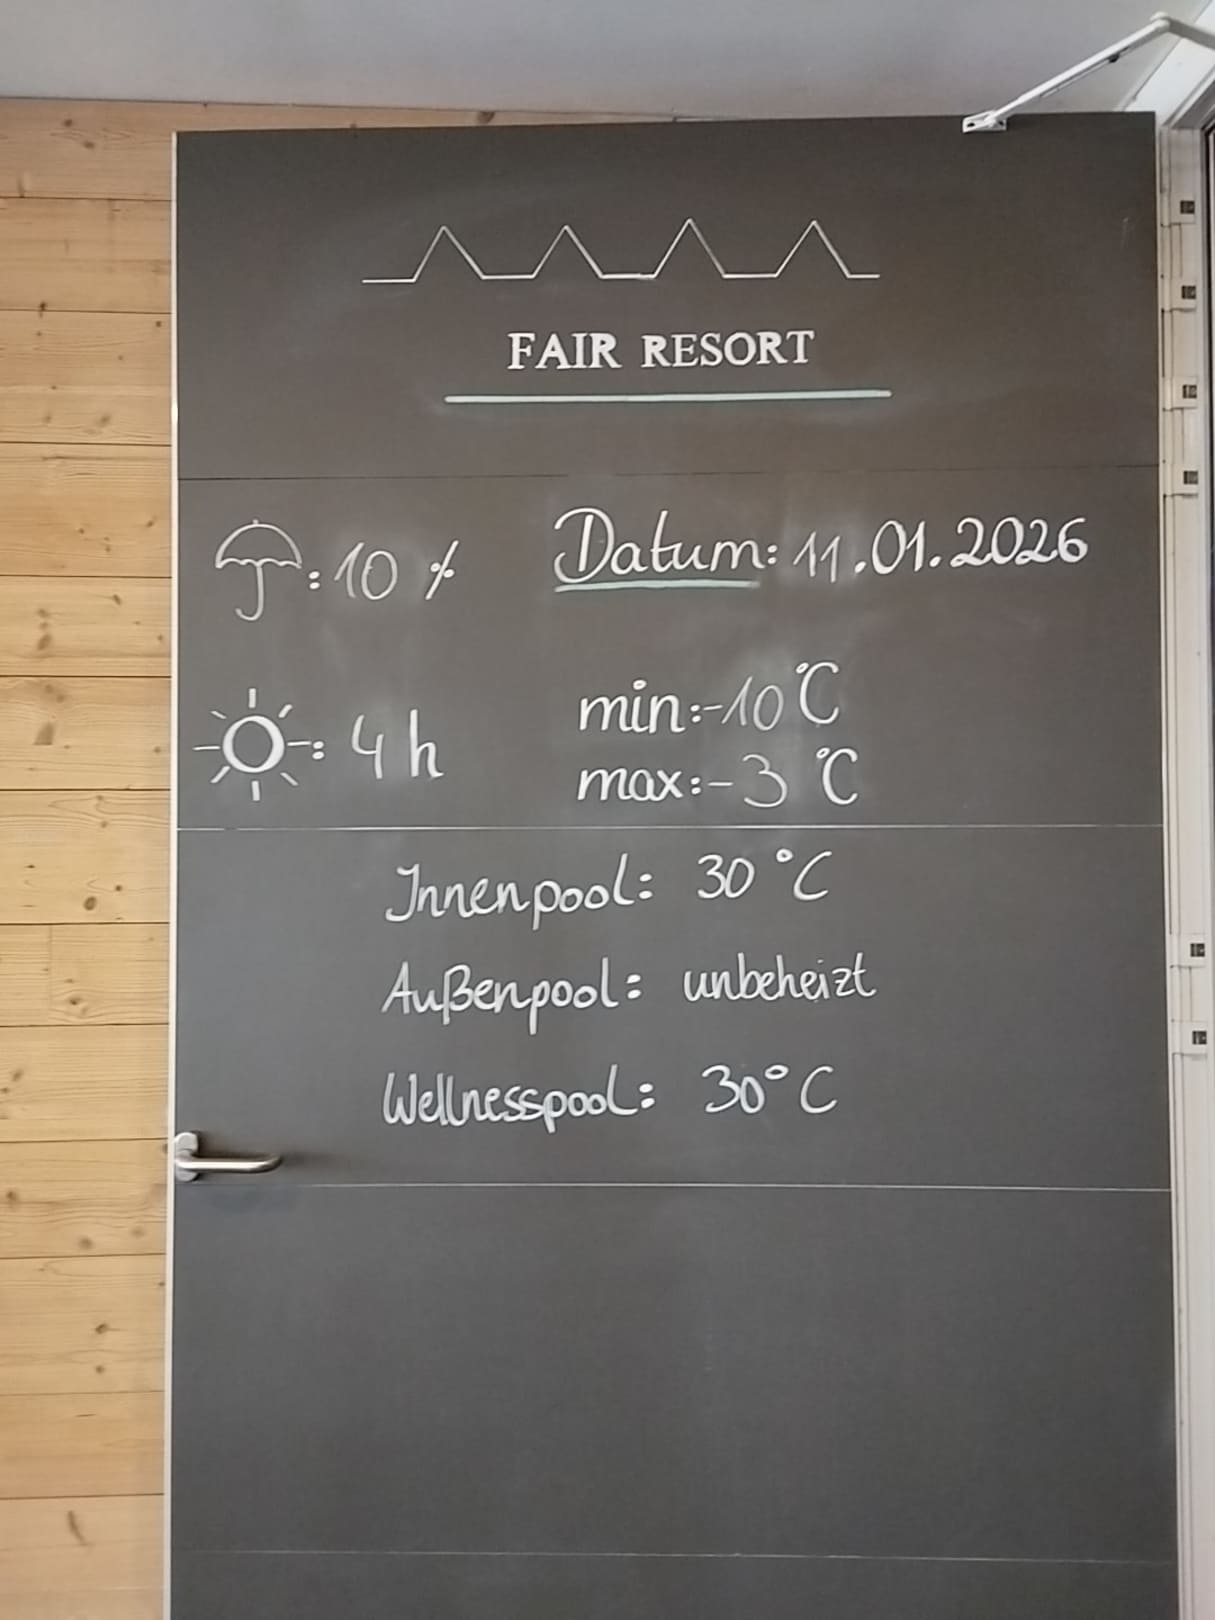 FAIR RESORT
: 10 % Datum: 11.01.2026
: 4 h
min: -10 °C
max: -3 °C
Innenpool: 30 °C
Außenpool: unbeheizt
Wellnesspool: 30 °C